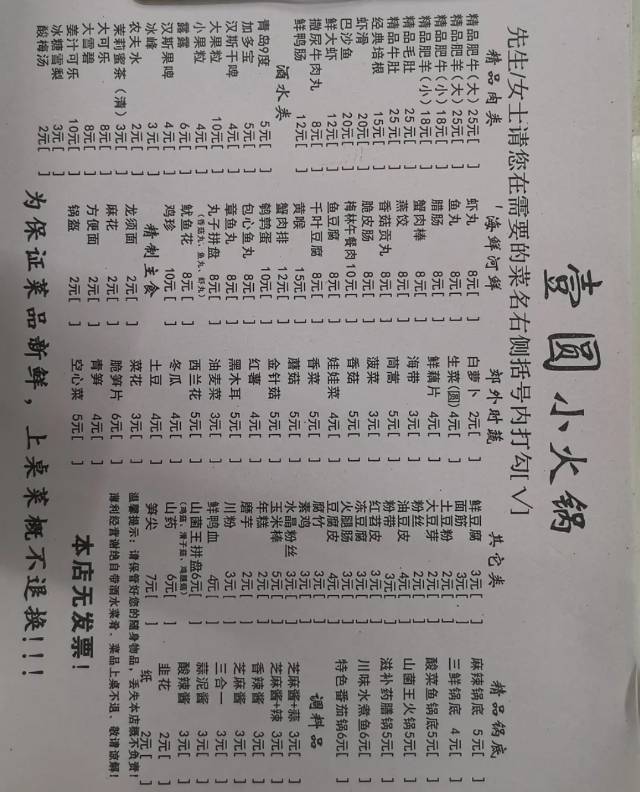 壹圆小火锅
先生/女士请您在需要的菜名右侧括号内打勾[√]
精品肉类
精品肥牛(大)25元[ ]
精品肥羊(大)25元[ ]
精品肥牛(小)18元[ ]
精品肥羊(小)18元[ ]
精品毛肚 25元[ ]
精品牛肚 25元[ ]
经典培根 15元[ ]
虾滑 20元[ ]
巴沙鱼 20元[ ]
鲜大虾 12元[ ]
撒尿牛肉丸 8元[ ]
鲜鸭肠 12元[ ]
酒水类
青岛9度 5元[ ]
加多宝 5元[ ]
汉斯干啤 4元[ ]
大果粒 10元[ ]
小果粒 4元[ ]
露露 6元[ ]
汉斯果啤 4元[ ]
冰峰 3元[ ]
农夫水 2元[ ]
茉莉蜜茶(清)3元[ ]
大可乐 8元[ ]
大雪碧 8元[ ]
姜汁可乐 10元[ ]
冰糖雪梨 3元[ ]
酸梅汤 2元[ ]
海鲜河鲜
虾丸 8元[ ]
鱼丸 8元[ ]
腊肠 8元[ ]
蟹肉棒 8元[ ]
燕饺 8元[ ]
香菇贡丸 8元[ ]
脆皮肠 8元[ ]
梅林午餐肉10元[ ]
鱼豆腐 8元[ ]
千叶豆腐 8元[ ]
黄喉 15元[ ]
蟹肉排 12元[ ]
鹌鹑蛋 10元[ ]
包心鱼丸 8元[ ]
章鱼丸 8元[ ]
丸子拼盘 8元[ ]
(香菇丸、鱼丸、虾丸)
鱿鱼花 8元[ ]
鸡珍 10元[ ]
精制主食
龙须面 2元[ ]
麻花 2元[ ]
方便面 2元[ ]
锅盔 2元[ ]
郊外时蔬
白萝卜 2元[ ]
生菜(圆)4元[ ]
鲜藕片 4元[ ]
海带 3元[ ]
茼蒿 5元[ ]
菠菜 3元[ ]
香菇 5元[ ]
娃娃菜 4元[ ]
香菜 5元[ ]
蘑菇 5元[ ]
金针菇 5元[ ]
红薯 4元[ ]
黑木耳 5元[ ]
油麦菜 3元[ ]
西兰花 5元[ ]
冬瓜 4元[ ]
土豆 4元[ ]
菜花 3元[ ]
脆笋片 6元[ ]
青笋 4元[ ]
空心菜 5元[ ]
其它类
鲜豆腐 3元[ ]
面筋 3元[ ]
土豆粉 2元[ ]
大豆芽 2元[ ]
粉丝 2元[ ]
油豆皮 4元[ ]
粉带 5元[ ]
红苕粉 3元[ ]
冻豆腐 3元[ ]
火腿肠 3元[ ]
豆腐皮 4元[ ]
腐竹 3元[ ]
素鸡 3元[ ]
水晶粉丝 3元[ ]
玉米棒 5元[ ]
年糕 5元[ ]
磨芋 2元[ ]
川粉 3元[ ]
鲜鸭血 4元[ ]
山菌王拼盘6元[ ]
山药 6元[ ]
笋尖 7元[ ]
精品锅底
麻辣锅底 5元[ ]
三鲜锅底 4元[ ]
酸菜鱼锅底5元[ ]
山菌王火锅5元[ ]
滋补药膳锅5元[ ]
川味水煮鱼6元[ ]
特色番茄锅6元[ ]
调料品
芝麻酱+蒜 3元[ ]
芝麻酱+辣 3元[ ]
香辣酱 3元[ ]
芝麻酱 3元[ ]
三合一 3元[ ]
蒜泥酱 3元[ ]
酸辣酱 3元[ ]
韭花 2元[ ]
纸 2元[ ]
温馨提示:请保管好您的随身物品,丢失本店概不负责!
薄利经营谢绝自带酒水菜肴、菜品上桌不退、敬请谅解!
本店无发票!
为保证菜品新鲜,上桌菜概不退换!!!